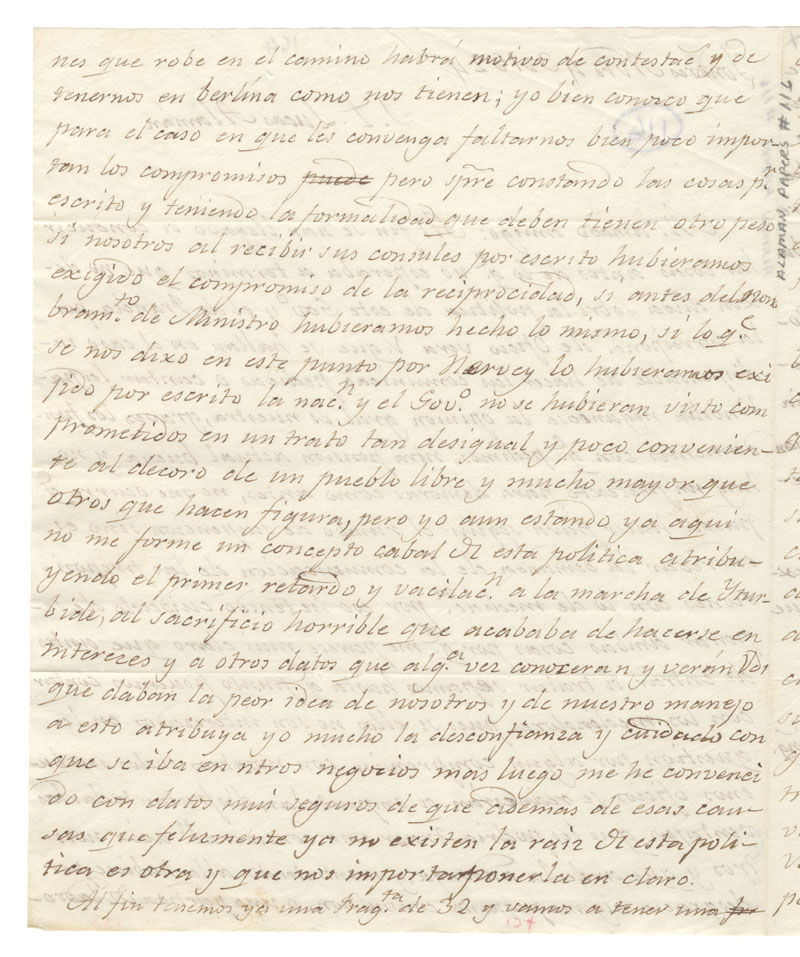 nes que robe en el camino habrá motivos de contestac.ˢ y de
tenernos en berlina como nos tienen; yo bien conosco que
para el caso en que les convenga faltarnos bien poco impor-
tan los compromisos puede pero spre constando las cosas p.ʳ
escrito y teniendo la formalidad que deben tienen otro peso
si nosotros al recibir sus consules por escrito hubieramos
exigido el compromiso de la reciprocidad, si antes del Nom
bram.ᵗᵒ de Ministro hubieramos hecho lo mismo, si lo q.ᵉ
se nos dixo en este punto por Hervey lo hubieramos exi
gido por escrito la nac.ⁿ y el Gov.ᵒ no se hubieran visto com
prometidos en un trato tan desigual y poco convenien-
te al decoro de un pueblo libre y mucho mayor que
otros que hacen figura, pero yo aun estando ya aqui
no me forme un concepto cabal de esta politica atribu-
yendo el primer retardo y vacilac.ⁿ a la marcha de Ytur-
bide, al sacrificio horrible que acababa de hacerse en
interezes y a otros datos que alg.ᵃ vez conoceran y verán Vds
que daban la peor idea de nosotros y de nuestro manejo
a esto atribuya yo mucho la desconfianza y cuidado con
que se iba en ntros negocios mas luego me he convenci
do con datos mui seguros de que ademas de esas cau-
sas que felizmente ya no existen la raiz de esta poli-
tica es otra y que nos importa ponerla en claro.
Al fin tenemos ya una frag.ᵗᵃ de 32 y vamos a tener una fr
ALAMAN PAPERS #116